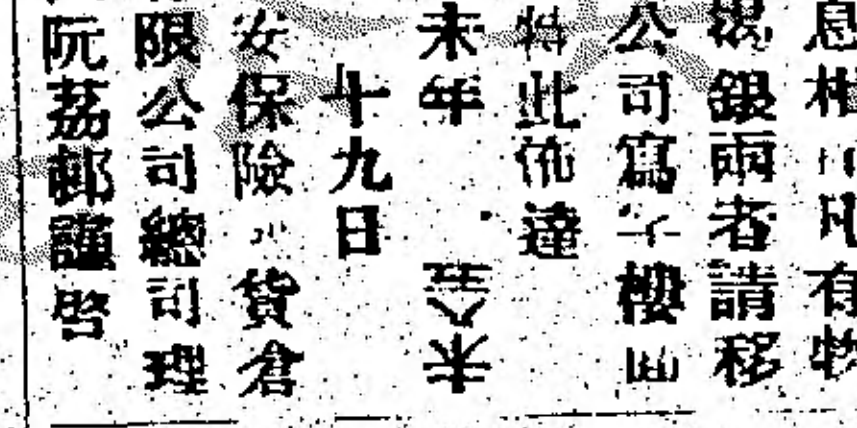 息凡有物
銀兩者請移
公司寫樓
特此佈達
未年
十九日
安保險貨倉
限公司總司理
阮荔邨謹啓